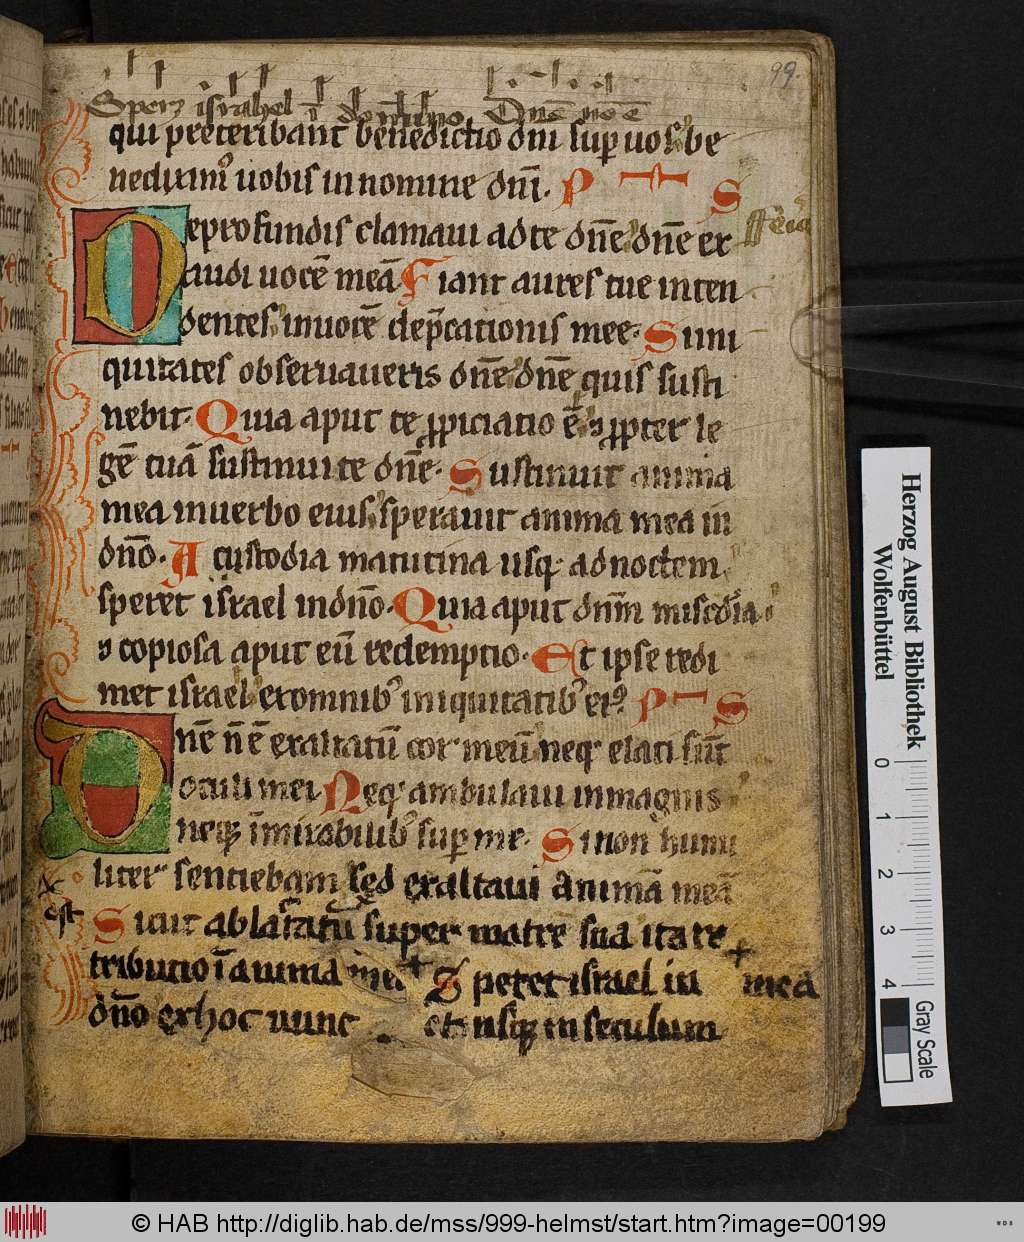 99.
Sperz israhel ī domino Dnē nō ē
qui preteribant benedictio dni sup uos be
nediximꝰ uobis in nomine dnī. P S
Deprofundis clamaui ad te dnē dnē ex
audi uocē meā Fiant aures tue inten
dentes inuocē dep̄cationis mee. Siini
quitates obseruaueris dnē dnē quis susti
nebit. Quia aput te ꝓpiciatio ē ⁊ ꝓpter le
gē tuā sustinui te dnē. Sustinuit anima
mea inuerbo eius sperauit anima mea in
dnō. A custodia matutina usq ad noctem
speret israel indnō. Quia aput dnm̄ miscdia
⁊ copiosa aput eū redemptio. Et ipse redi
met israel exomnibꝰ iniquitatibꝰ eiꝰ P S
Dnē n̄ ē exaltatū cor meū neq elati sūt
oculi mei Neq ambulaui inmagnis
neq īmirabilibꝰ sup me. Si non humi
liter sentiebam sed exaltaui animā meā
Sicut ablactatū super matrē sua ita re
est
tributio ī anima mea
Speret israel in
dn̄o exhoc nunc et usq in seculum
Herzog August Bibliothek
Wolfenbüttel
0 1 2 3 4
Gray Scale
© HAB http://diglib.hab.de/mss/999-helmst/start.htm?image=00199